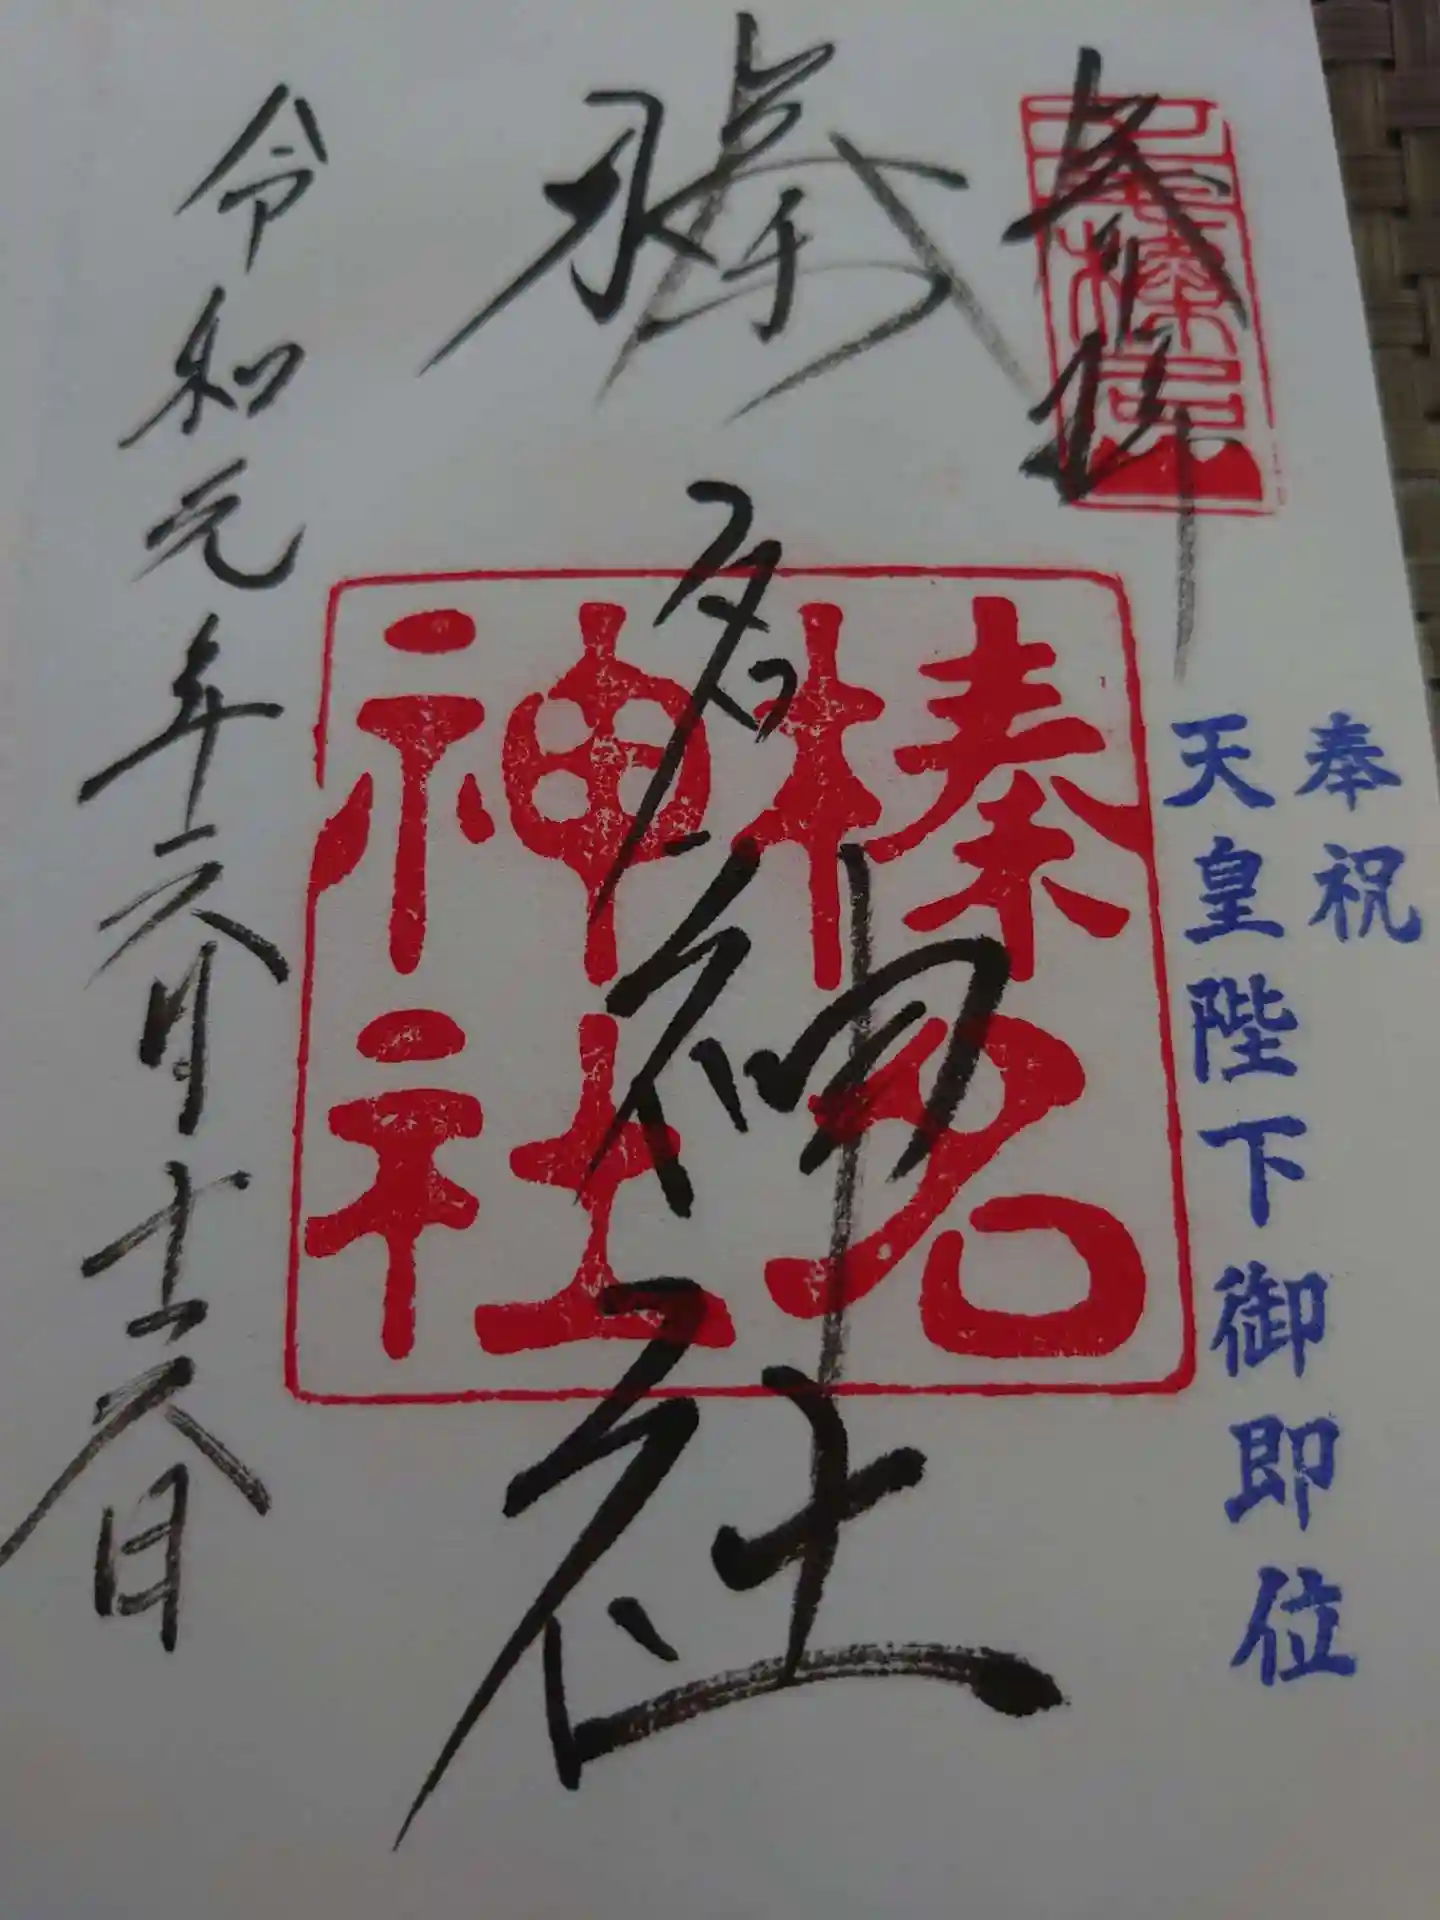 奉祝
天皇陛下御即位
奉拝
榛名神社
榛名
神社
令和元年六月十六日